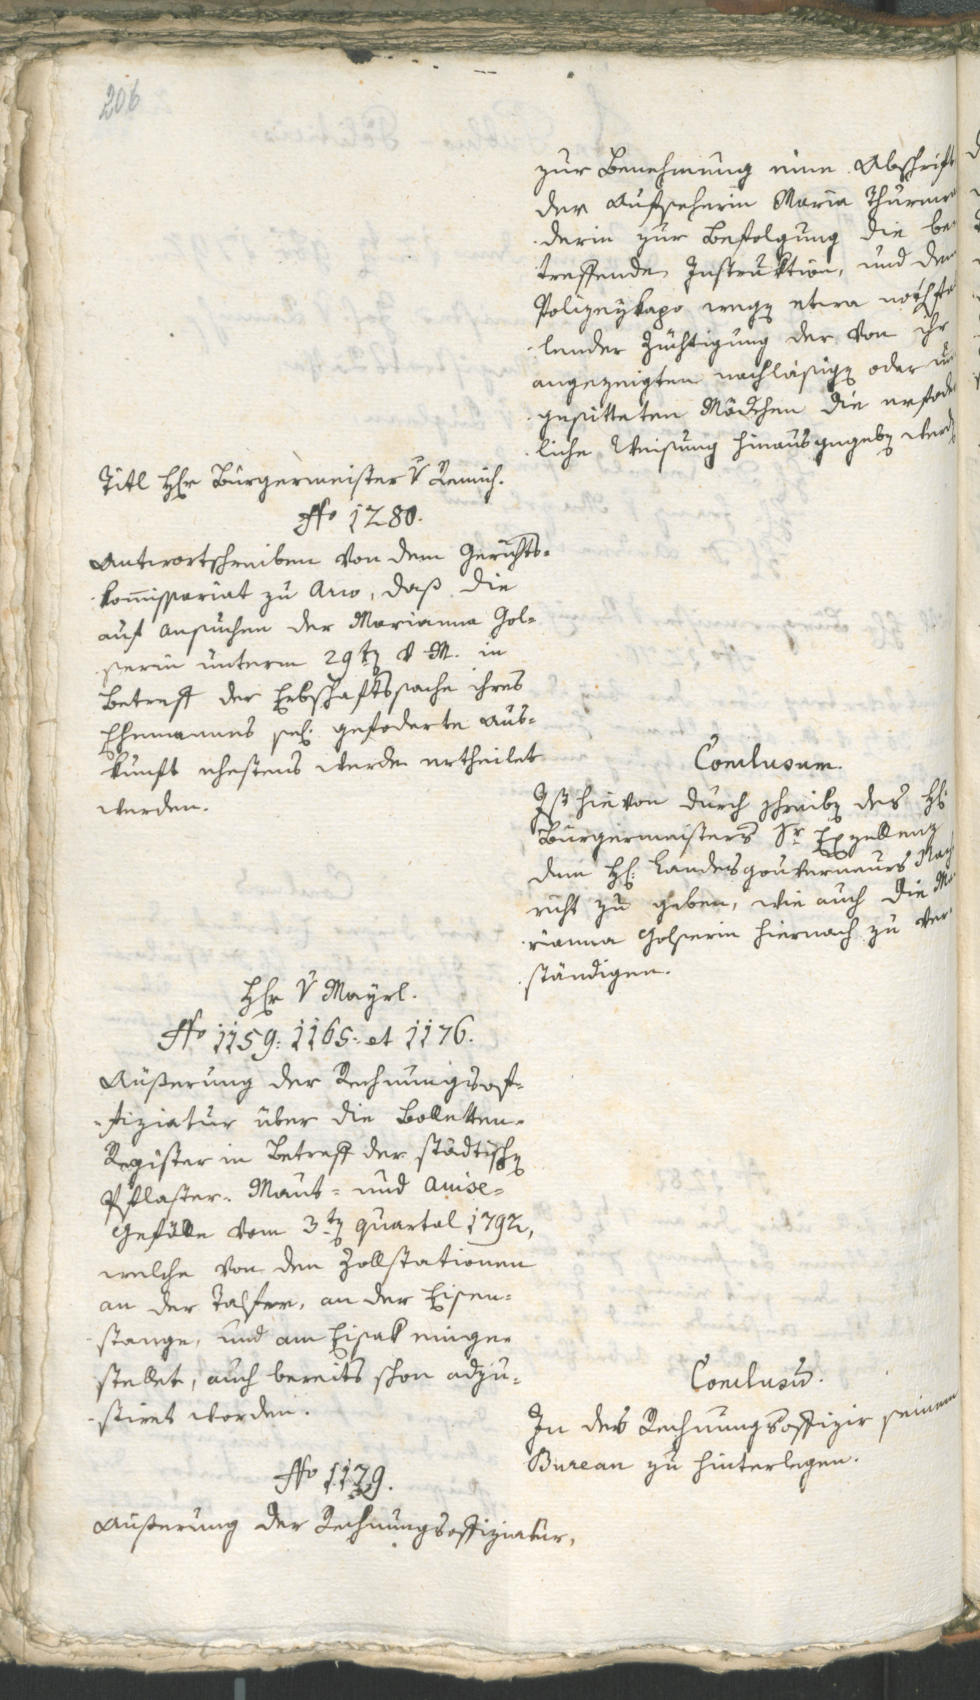 206
zur Benehmung eine Abschrift
der Aufseherin Maria Thurner
derin zur Befolgung die be-
treffende Instruktion, und dem
Polizeykapo wegen etwa nöthfal-
lender Züchtigung der von ihr
angezeigten nachläßigen oder un-
gesitteten Mädchen die erfoder-
liche Weisung hinausgegeben werde
Titl Hr Bürgermeister v Remich.
No 1280.
Antwortschreiben von dem Gerichts-
kommissariat zu Arco, daß die
auf Ansuchen der Marianna Gol-
serin unterm 29ten v. M. in
Betreff der Erbschaftssache ihres
Ehemannes sel. gefoderte Aus-
kunft ehestens werde ertheilet
werden.
Conclusum.
Ist hievon durch Schreiben des H.
Bürgermeisters Sr Exzellenz
dem H. Landesgouverneurs Nach-
richt zu geben, wie auch die Ma-
rianna Golserin hiernach zu ver-
ständigen.
Hr v Mayrl.
No 1159. 1165. et 1176.
Äußerung der Rechnungsof-
fiziatur über die Bolleten-
Register in Betreff der städtischen
Pflaster- Maut- und Avise-
Gefälle vom 3ten Quartal 1792,
welche von den Zollstationen
an der Talfer, an der Eisen-
stange, und am Eisak einge-
stellet, auch bereits schon adju-
stiret worden.
Conclusum.
In des Rechnungsoffizir seinem
Bureau zu hinterlegen.
No 1179.
Äußerung der Rechnungsoffiziatur,